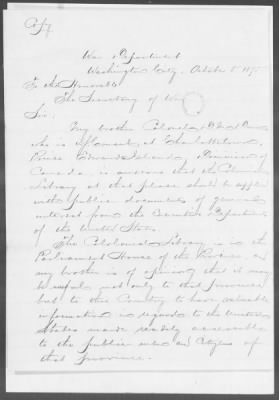 Copy
War Department
Washington City, October 8, 187
To the Honorable
The Secretary of War
Sir:
My brother Colonel
who is Consul at Charlottetown,
Prince Edward Island, Province of
Canada, is anxious that the Colonial
Library at that place should be supplied
with public documents of general
interest from the Executive Department
of the United States.
The Colonial Library is in the
Parliament House of the Province and
my brother is of opinion that it may
be useful not only to that Province
but to this Country to have valuable
information in regard to the United
States made readily accessible
to the public men and citizens of
that Province.